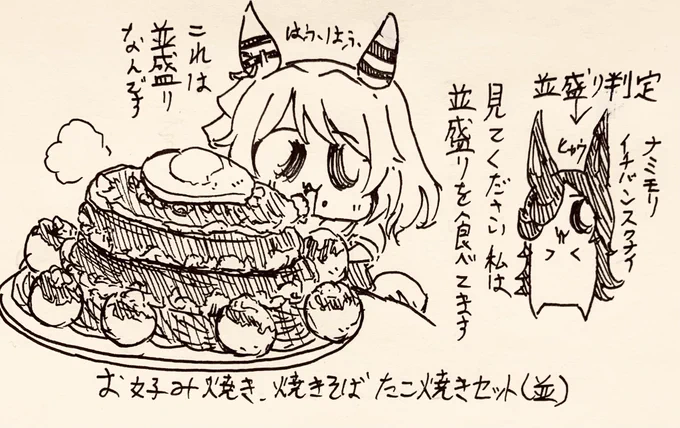 これは
並盛り
なんです
はふ、はふ、
見てください 私は
並盛りを食べてます
並盛り判定
ナミモリ
イチバンスクナイ
お好み焼き、焼きそば たこ焼きセット(並)